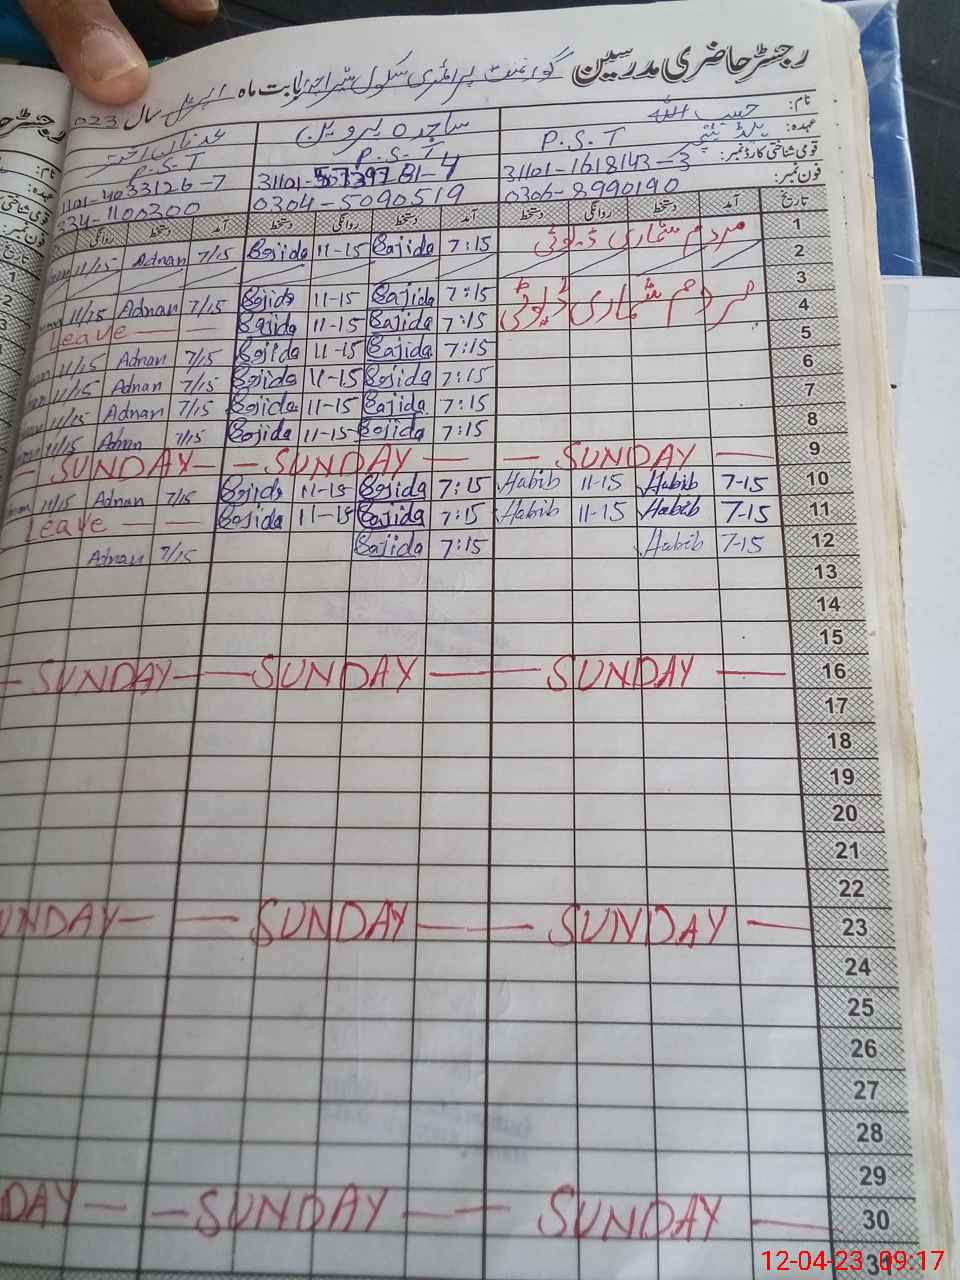 رجسٹر حاضری مدرسین گورنمنٹ پرائمری سکول بابت ماہ اپریل سال 023
نام: حبیب اللہ ساجدہ پروین عدنان اختر
عہدہ: ہیڈ ٹیچر P.S.T P.S.T P.S.T
قومی شناختی کارڈ نمبر: 31101-1618143-3 81-4 1101-4033126-7
فون نمبر: 0306-8990190 0304-5090519 334-1100300
تاریخ آمد دستخط روانگی دستخط آمد دستخط روانگی دستخط آمد دستخط روانگی
1 مردم شماری ڈیوٹی 7:15 Sajida 11-15 Sajida 7/15 Adnan 11/15
2
3 7:15 Sajida 11-15 Sajida 7/15 Adnan 11/15
4 مردم شماری ڈیوٹی 7:15 Sajida 11-15 Sajida Leave
5 7:15 Sajida 11-15 Sajida 7/15 Adnan 11/15
6 7:15 Sajida 11-15 Sajida 7/15 Adnan 11/15
7 7:15 Sajida 11-15 Sajida 7/15 Adnan 11/15
8 7:15 Sajida 11-15 Sajida 7/15 Adnan 11/15
9 SUNDAY SUNDAY SUNDAY
10 7-15 Habib 11-15 Habib 7:15 Sajida 11-15 Sajida 7/15 Adnan 11/15
11 7-15 Habib 11-15 Habib 7:15 Sajida 11-15 Sajida Leave
12 7-15 Habib 7:15 Sajida 7/15 Adnan
13
14
15
16 SUNDAY SUNDAY SUNDAY
17
18
19
20
21
22
23 SUNDAY SUNDAY UNDAY
24
25
26
27
28
29
30 SUNDAY SUNDAY DAY
31
12-04-23 09:17